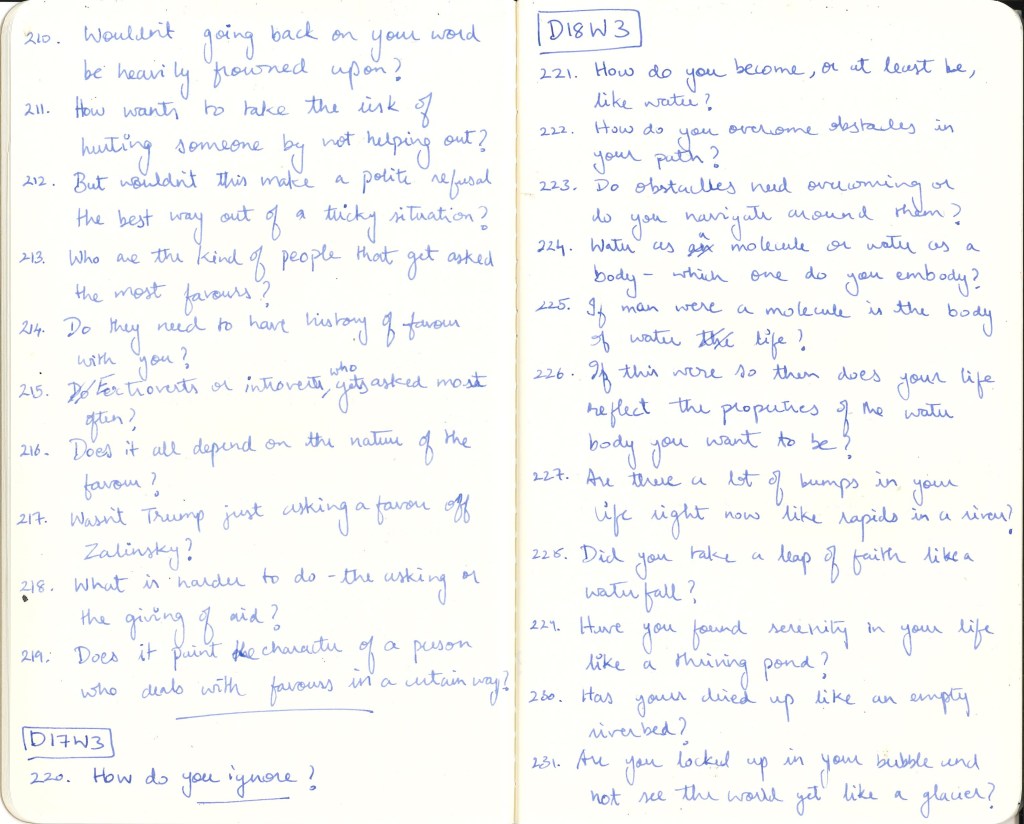 210. Wouldn't going back on your word
be heavily frowned upon?
211. How wants to take the risk of
hurting someone by not helping out?
212. But wouldn't this make a polite refusal
the best way out of a tricky situation?
213. Who are the kind of people that get asked
the most favours?
214. Do they need to have history of favour
with you?
215. Extroverts or introverts, who gets asked most
often?
216. Does it all depend on the nature of the
favour?
217. Wasn't Trump just asking a favour off
Zalinsky?
218. What is harder to do - the asking or
the giving of aid?
219. Does it paint the character of a person
who deals with favours in a certain way?
D17W3
220. How do you ignore?
D18W3
221. How do you become, or at least be,
like water?
222. How do you overcome obstacles in
your path?
223. Do obstaclles need overcoming or
do you navigate around them?
224. Water as a molecule or water as a
body - which one do you embody?
225. If man were a molecule is the body
of water life?
226. If this were so then does your life
reflect the properties of the water
body you want to be?
227. Are there a lot of bumps in your
life right now like rapids in a river?
228. Did you take a leap of faith like a
waterfall?
229. Have you found serenity in your life
like a thriving pond?
230. Has yours dried up like an empty
riverbed?
231. Are you locked up in your bubble and
not see the world yet like a glacier?